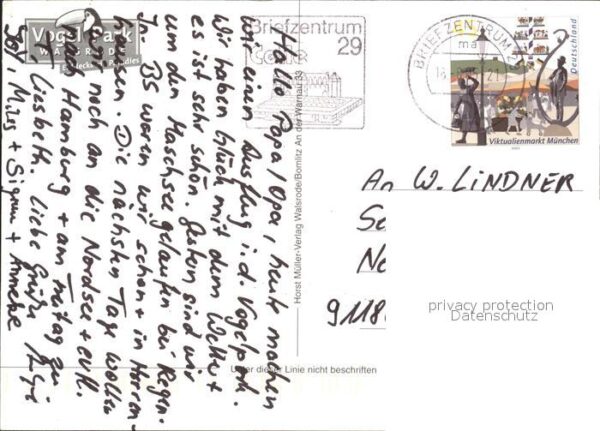 Vogelpark
Hallo Papa/Opa, heut machen
wir einen Ausflug i. d. Vogelpark.
Wir haben Glück mit dem Wetter +
es ist sehr schön. Gestern sind wir
um den Maschsee gelaufen bei Regen.
In BS waren wir schon + in Herren-
hausen. Die nächsten Tage wollen
wir noch an die Nordsee + evtl.
nach Hamburg + am Freitag zu
Liesbeth. Liebe Grüße
+ Sigrun + Anneke
Horst Müller-Verlag Walsrode/Bomlitz An der Warnau 33
Unter dieser Linie nicht beschriften
Briefzentrum
29
BRIEFZENTRUM 29
ma
Deutschland
Viktualienmarkt München
An W. LINDNER
91186
privacy protection
Datenschutz